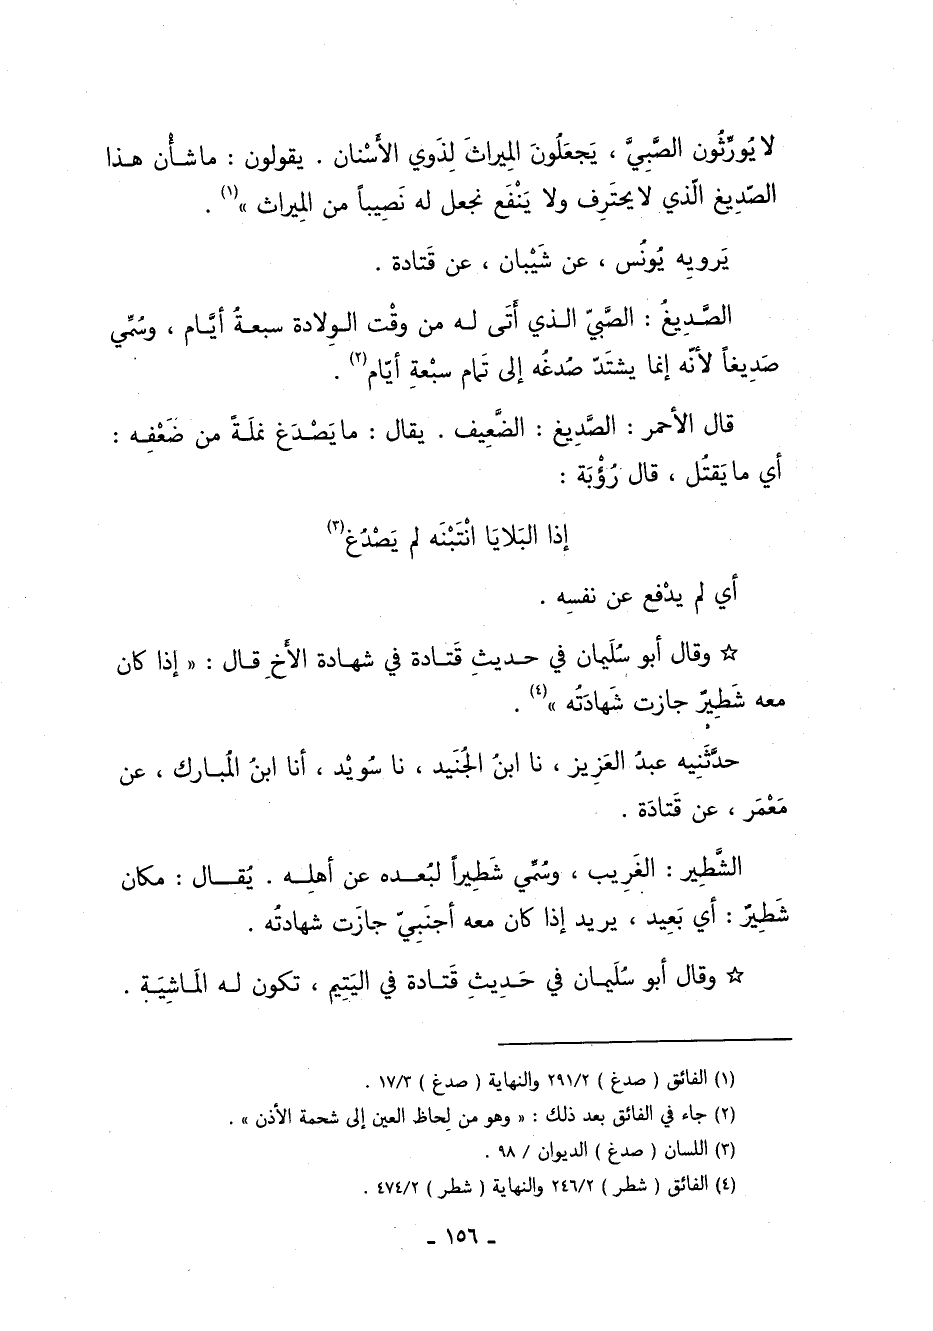 لا يُورِّثُون الصَّبِيَّ ، يَجعَلُونَ المِيراثَ لِذَوي الأَسْنان . يقولون : ماشأْن هذا
الصّدِيغ الّذي لا يحتَرِف ولا يَنْفَع نجعل له نَصِيباً من المِيراث »(١) .
يَرويه يُونُس ، عن شَيْبان ، عن قَتادة .
الصَّدِيغُ : الصَّبيّ الذي أَتَى له من وقْت الوِلادة سبعةُ أيَّام ، وسُمِّي
صَدِيغاً لأنّه إنما يشتَدّ صُدغُه إلى تَمام سبْعةِ أيّام(٢) .
قال الأحمر : الصَّدِيغ : الضَّعِيف . يقال : ما يَصْدَغ نملَةً من ضَعْفِه :
أي ما يَقتُل ، قال رُؤْبَة :
إذا البَلايَا انْتَبْنَه لم يَصْدُغِ(٣)
أي لم يدْفع عن نفسِه .
☆ وقال أبو سُلَيمان في حديثِ قَتادة في شهادة الأَخِ قال : « إذا كان
معه شَطِيرٌ جازت شَهادَتُه »(٤) .
حدَّثَنِيه عبدُ العَزِيز ، نا ابنُ الجُنَيد ، نا سُويْد ، أنا ابنُ المُبارك ، عن
مَعْمَر ، عن قَتادَة .
الشَّطِير : الغَرِيب ، وسُمِّي شَطِيراً لبُعده عن أهلِه . يُقال : مكان
شَطِيرٌ : أي بَعِيد ، يريد إذا كان معه أجنَبِيّ جازَت شهادتُه .
☆ وقال أبو سُلَيمان في حَدِيثِ قَتادة في اليَتِيم ، تكون له المَاشِيَة .
(١) الفائق ( صدغ ) ٢٩١/٢ والنهاية ( صدغ ) ١٧/٣ .
(٢) جاء في الفائق بعد ذلك : « وهو من لِحاظ العين إلى شحمة الأذن » .
(٣) اللسان ( صدغ ) الديوان / ٩٨ .
(٤) الفائق ( شطر ) ٢٤٦/٢ والنهاية ( شطر ) ٤٧٤/٢ .
ـ ١٥٦ ـ